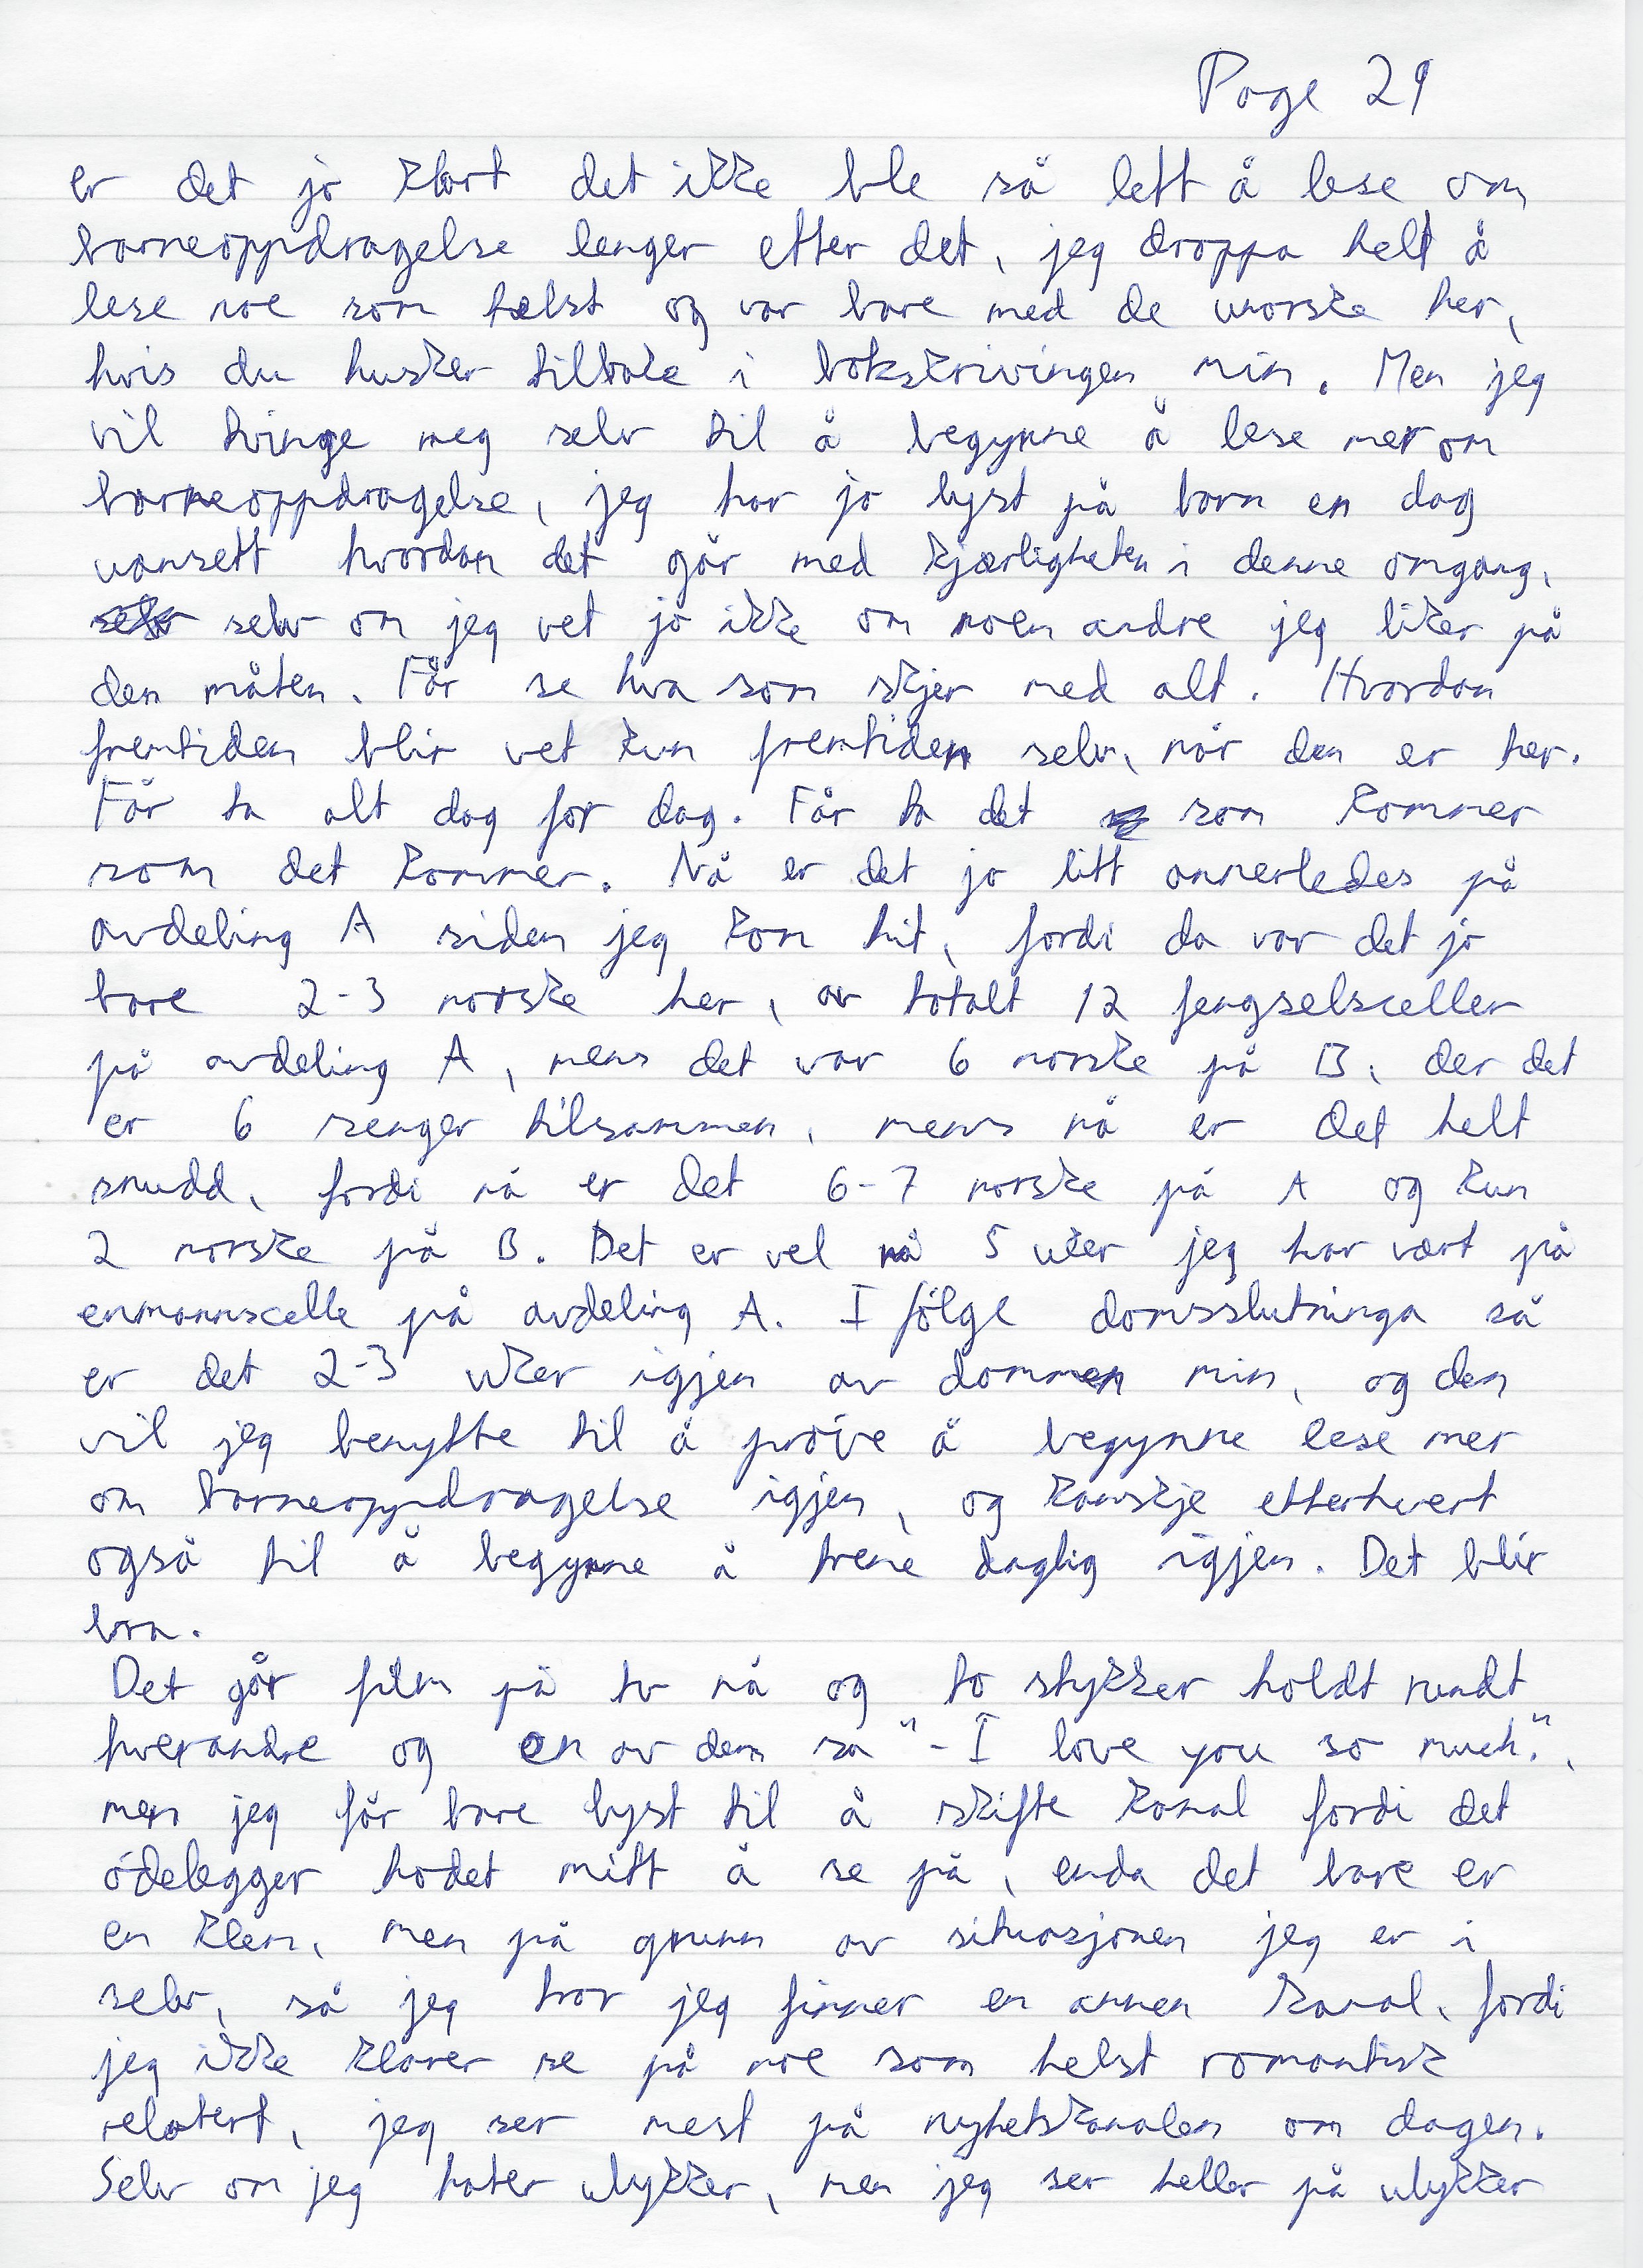 Page 29
er det jo klart det ikke ble så lett å lese om
barneoppdragelse lenger etter det, jeg droppa helt å
lese noe som helst og var bare med de unorske her,
hvis du husker tilbake i bokskrivingen min. Men jeg
vil tvinge meg selv til å begynne å lese mer om
barneoppdragelse, jeg har jo lyst på barn en dag
uansett hvordan det går med kjærligheten i denne omgang,
selv om jeg vet jo ikke om noen andre jeg liker på
den måten. Får se hva som skjer med alt. Hvordan
fremtiden blir vet kun fremtiden selv, når den er her.
Får ta alt dag for dag. Får ta det som kommer
som det kommer. Nå er det jo litt annerledes på
avdeling A siden jeg kom hit, fordi da var det jo
bare 2-3 norske her, av totalt 12 fengselsceller
på avdeling A, mens det var 6 norske på B, der det
er 6 senger tilsammen, mens nå er det helt
snudd, fordi nå er det 6-7 norske på A og kun
2 norske på B. Det er vel nå 5 uker jeg har vært på
enmannscelle på avdeling A. I følge domsslutninga så
er det 2-3 uker igjen av dommen min, og den
vil jeg benytte til å prøve å begynne lese mer
om barneoppdragelse igjen, og kanskje etterhvert
også til å begynne å trene daglig igjen. Det blir
bra.
Det går film på tv nå og to stykker holdt rundt
hverandre og en av dem sa "- I love you so much.",
men jeg får bare lyst til å skifte kanal fordi det
ødelegger hodet mitt å se på, enda det bare er
en klem, men på grunn av situasjonen jeg er i
selv, så jeg tror jeg finner en annen kanal, fordi
jeg ikke klarer se på noe som helst romantisk
relatert, jeg ser mest på nyhetskanalen om dagen.
Selv om jeg hater ulykker, men jeg ser heller på ulykker